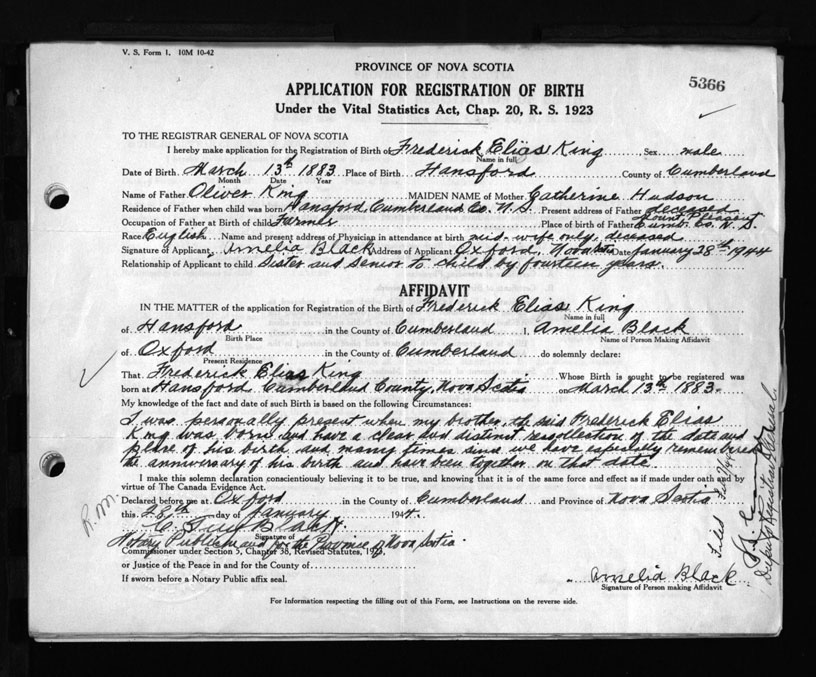 V. S. Form 1. 10M 10-42
PROVINCE OF NOVA SCOTIA
5366
APPLICATION FOR REGISTRATION OF BIRTH
Under the Vital Statistics Act, Chap. 20, R. S. 1923
TO THE REGISTRAR GENERAL OF NOVA SCOTIA
I hereby make application for the Registration of Birth of Frederick Elias King, Sex male
Name in full
Date of Birth March 13th 1883 Place of Birth Hansford County of Cumberland
Month Date Year
Name of Father Oliver King MAIDEN NAME of Mother Catherine Hudson
Residence of Father when child was born Hansford, Cumberland Co. N.S. Present address of Father deceased
Occupation of Father at Birth of child Farmer Place of birth of Father Mount Pleasant Cumb. Co. N.S.
Race English Name and present address of Physician in attendance at birth mid-wife only, deceased
Signature of Applicant Amelia Black Address of Applicant Oxford, Nova Scotia Date January 28th 1944
Relationship of Applicant to child Sister and senior to child by fourteen years.
AFFIDAVIT
IN THE MATTER of the application for Registration of the Birth of Frederick Elias King
Name in full
of Hansford in the County of Cumberland I, Amelia Black
Birth Place Name of Person Making Affidavit
of Oxford in the County of Cumberland do solemnly declare:
Present Residence
That Frederick Elias King Whose Birth is sought to be registered was
born at Hansford, Cumberland County, Nova Scotia on March 13th 1883.
My knowledge of the fact and date of such Birth is based on the following Circumstances:
I was personally present when my brother, the said Frederick Elias
King was born and have a clear and distinct recollection of the date and
place of his birth and many times since we have especially remembered
the anniversary of his birth and have been together on that date.
I make this solemn declaration conscientiously believing it to be true, and knowing that it is of the same force and effect as if made under oath and by
virtue of The Canada Evidence Act.
Declared before me at Oxford in the County of Cumberland and Province of Nova Scotia
this 28th day of January 1944.
Black
Signature of
Notary Public in and for the Province of Nova Scotia.
Commissioner under Section 5, Chapter 38, Revised Statutes, 1923,
or Justice of the Peace in and for the County of
If sworn before a Notary Public affix seal.
Amelia Black
Signature of Person making Affidavit
For Information respecting the filling out of this Form, see Instructions on the reverse side.
R.M.
Filed
Deputy Registrar General.